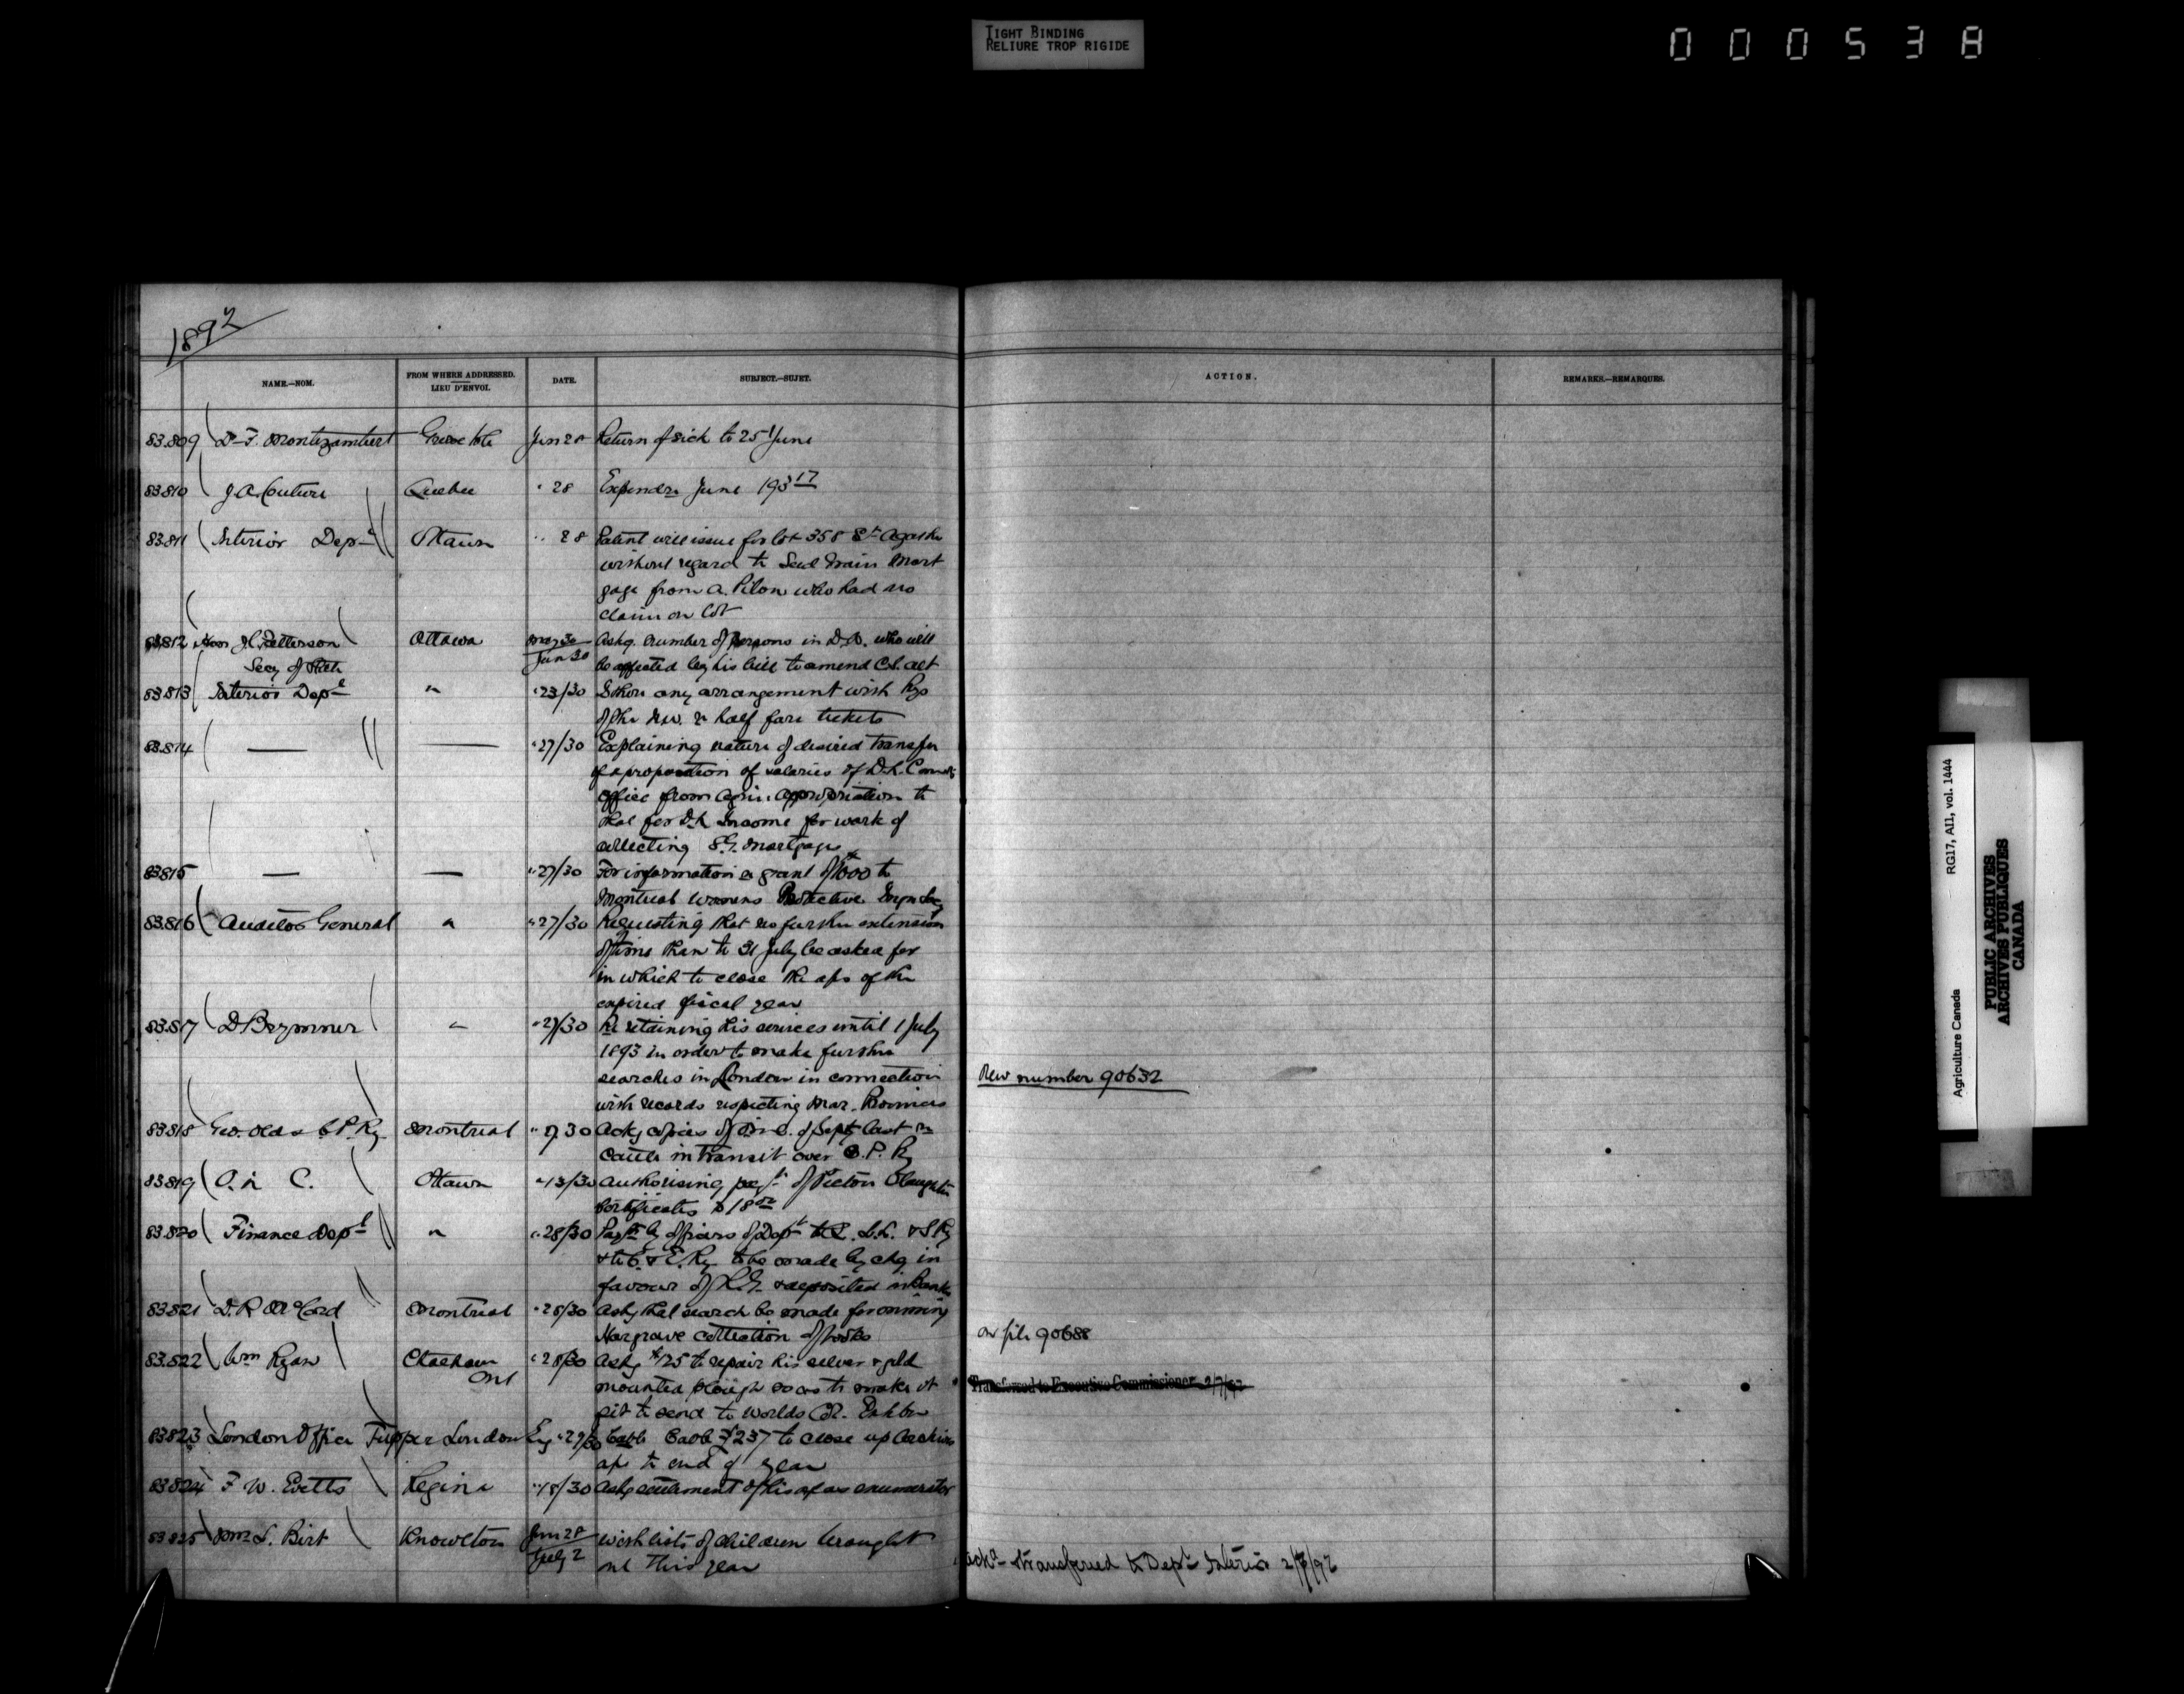 TIGHT BINDING
RELIURE TROP RIGIDE
000538
1892
NAME.—NOM.
FROM WHERE ADDRESSED.
LIEU D'ENVOI.
DATE.
SUBJECT.—SUJET.
ACTION.
REMARKS.—REMARQUES.
83.809 Dr F. Montizambert Grosse Isle Jun 28 Return of sick to 25 June
83.810 J.A. Couture Quebec " 28 Expendre June 193 17
83.811 Interior Dept Ottawa " 28 Patent will issue for lot 358 St Agathe
without regard to Seed Grain Mort
gage from A. Pilon who had no
claim on lot
83.812 Hon J.C. Patterson Ottawa May 30 Askg. number of persons in who will
Secy of State Jun 30 be affected by his bill to amend C.S. act
83.813 Interior Dept " " 23/30 any arrangement with Rys
of the N.W. re half fare tickets
83.814 — — " 27/30 Explaining nature of desired transfer
of a proportion of salaries of D.L. Comrs
office from appropriation to
that for D.L. Income for work of
collecting S.G. Mortgages
83.815 — — " 27/30 For information re grant of $1000 to
Montreal Womens Protective Immgn Socy
83.816 Auditor General " " 27/30 Requesting that no further extension
of time than to 31 July be asked for
in which to close the a/cs of the
expired fiscal year
83.817 D Brymner " " 27/30 Re retaining his services until 1 July
1893 in order to make further
searches in London in connection
with records respecting Mar. Provinces
New number 90632
83.818 Geo. Olds C.P. Ry. Montreal " 30 Ackg copies of O.in C. of Septr last re
cattle in transit over C.P. Ry
83.819 O. in C. Ottawa " 13/30 Authorising payt of Pictou Slaughter
Certificates $18 00
83.820 Finance Dept " " 28/30 Payts by officers of Dept to Q. & L. St. J. Ry
& to C. & E. Ry to be made by chq in
favour of R.G. & deposited in Bank
83.821 D.R. McCord Montreal " 28/30 Askg that search be made for missing
Hargrave collection of books
on file 90688
83.822 Wm Ryan Chatham " 28/30 Askg $125 to repair his silver & gold
Ont mounted plough so as to make it
fit to send to Worlds Col. Exhbn
Transferred to Executive Commissioner 2/7/92
83823 London Office Tupper London Eng " 29/30 Cable £237 to close up Archives
a/c to end of year
83824 F. W. Evetts Regina " 18/30 Askg settlement of his a/c as enumerator
83825 Mrs L. Birt Knowlton Jun 28 With lists of children brought
July 2 out this year
ackd - transferred to Dept Interior 2/7/92
Agriculture Canada RG17, AI1, vol. 1444
PUBLIC ARCHIVES
ARCHIVES PUBLIQUES
CANADA